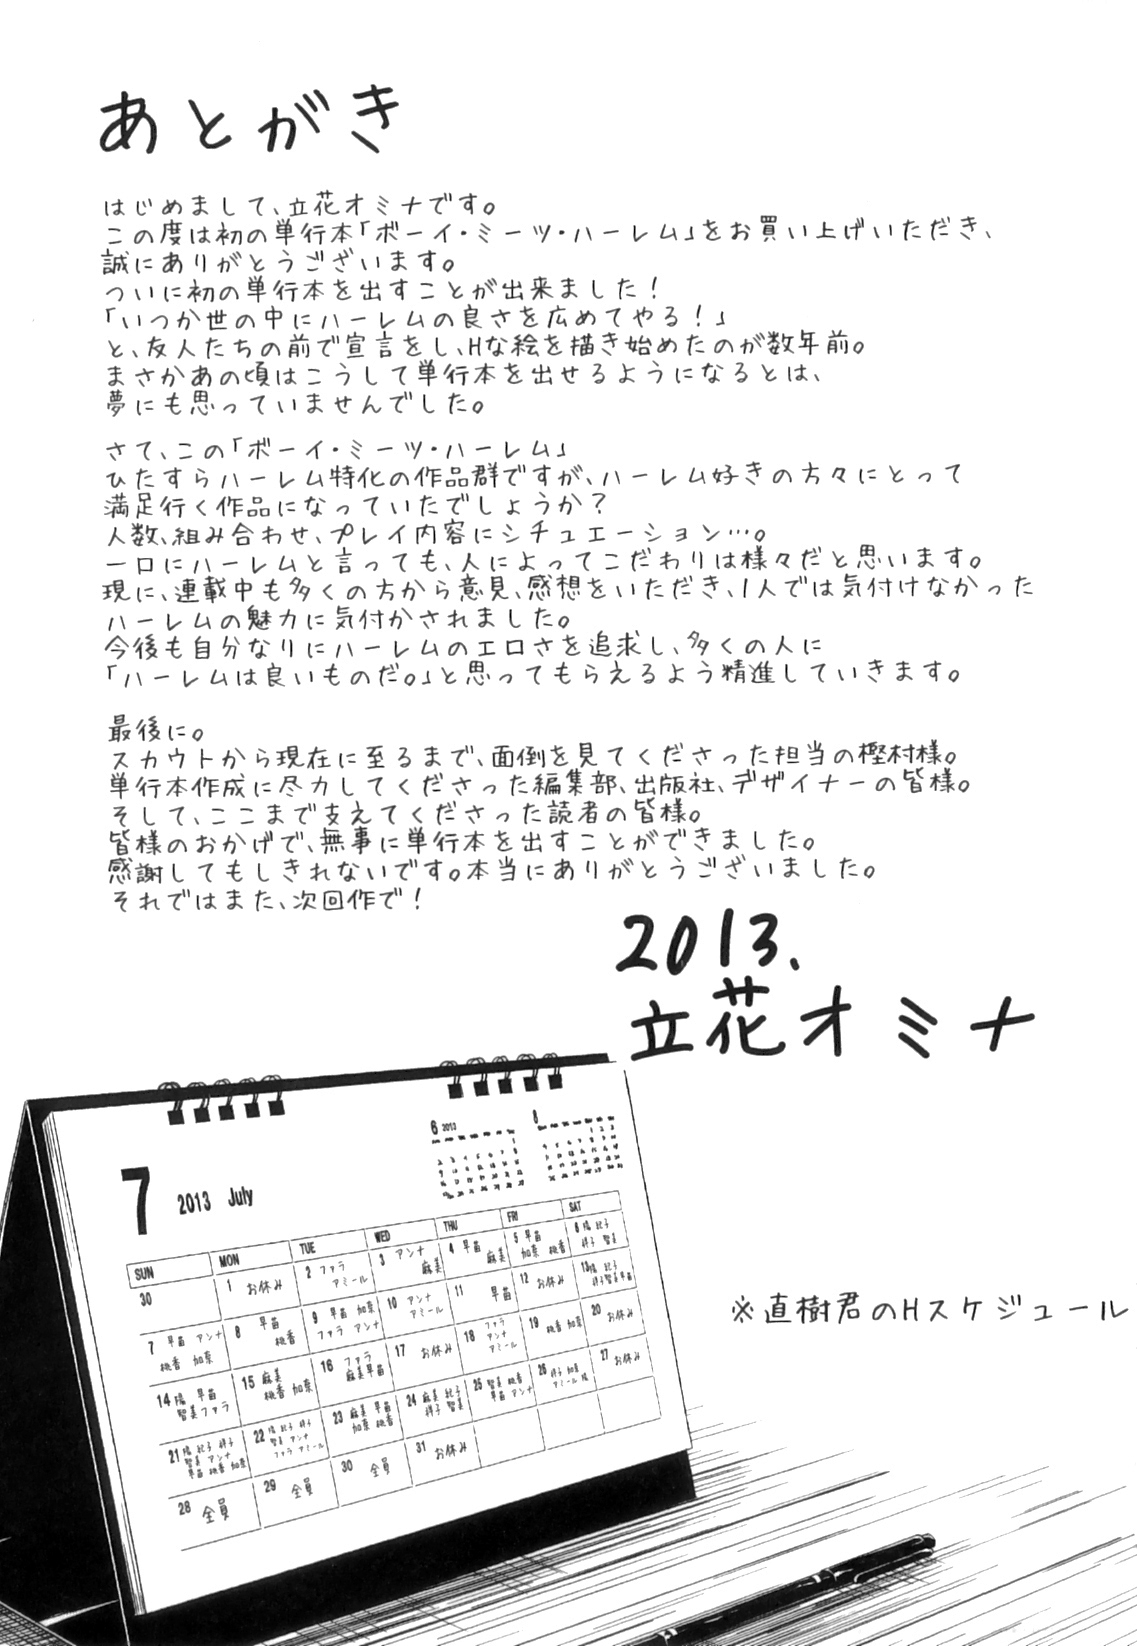 あとがき
はじめまして、立花オミナです。
この度は初の単行本「ボーイ・ミーツ・ハーレム」をお買い上げいただき、
誠にありがとうございます。
ついに初の単行本を出すことが出来ました！
「いつか世の中にハーレムの良さを広めてやる！」
と、友人たちの前で宣言をし、Hな絵を描き始めたのが数年前。
まさかあの頃はこうして単行本を出せるようになるとは、
夢にも思っていませんでした。
さて、この「ボーイ・ミーツ・ハーレム」
ひたすらハーレム特化の作品群ですが、ハーレム好きの方々にとって
満足行く作品になっていたでしょうか？
人数、組み合わせ、プレイ内容にシチュエーション…。
一口にハーレムと言っても、人によってこだわりは様々だと思います。
現に、連載中も多くの方から意見、感想をいただき、1人では気付けなかった
ハーレムの魅力に気付かされました。
今後も自分なりにハーレムのエロさを追求し、多くの人に
「ハーレムは良いものだ。」と思ってもらえるよう精進していきます。
最後に。
スカウトから現在に至るまで、面倒を見てくださった担当の樫村様。
単行本作成に尽力してくださった編集部、出版社、デザイナーの皆様。
そして、ここまで支えてくださった読者の皆様。
皆様のおかげで、無事に単行本を出すことができました。
感謝してもしきれないです。本当にありがとうございました。
それではまた、次回作で！
2013.
立花オミナ
6 2013
8
7 2013 July
SUN MON TUE WED THU FRI SAT
30
1 お休み
2 ファラ アミール
3 アンナ 麻美
4 早苗 麻美
5 早苗 加奈 桃香
6 陽 紀子 祥子 智美
7 早苗 アンナ 桃香 加奈
8 早苗 桃香
9 早苗 加奈 ファラ アンナ
10 アンナ アミール
11 早苗
12 お休み
13 陽 紀子 祥子 智美 早苗
14 陽 早苗 智美 ファラ
15 麻美 桃香 加奈
16 ファラ 麻美 早苗
17 お休み
18 ファラ アンナ アミール
19 桃香 加奈
20 お休み
21 陽 紀子 祥子 智美 アンナ 早苗 桃香 加奈
22 陽 紀子 祥子 智美 アンナ ファラ アミール
23 麻美 早苗 加奈 桃香
24 麻美 紀子 祥子 智美
25 智美 桃香 早苗 アンナ
26 祥子 加奈 アミール 陽
27 お休み
28 全員
29 全員
30 全員
31 お休み
※直樹君のHスケジュール